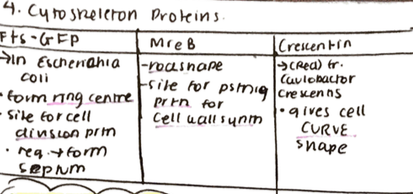 4. Cytoskeleton Proteins.
Fts-GFP
→In Escherichia
coli
• form ring centre
• Site for cell
division prtn
• req. → form
septum
MreB
-rodshape
-Site for
prtn for
cell wall synm
Crescentin
→(Red) fr.
Caulobactor
crescenns
• gives cell
CURVE
shape